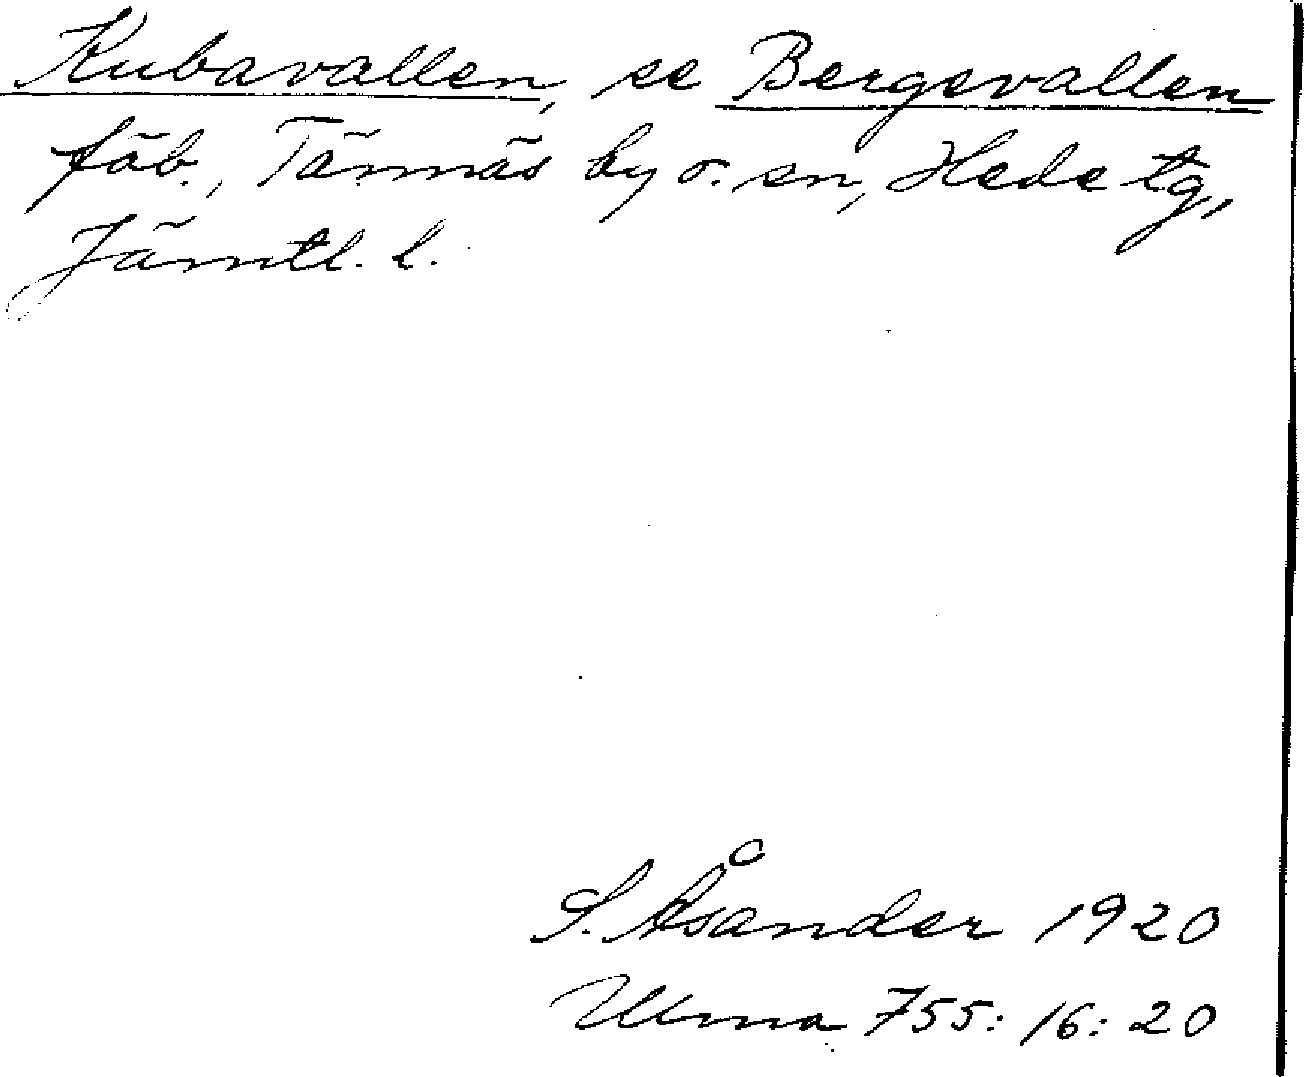 Kubavallen, se Bergsvallen
fäb., Tännäs by o. sn, Hede tg,
Jämtl. l.
S. Åsander 1920
Ulma 755: 16: 20